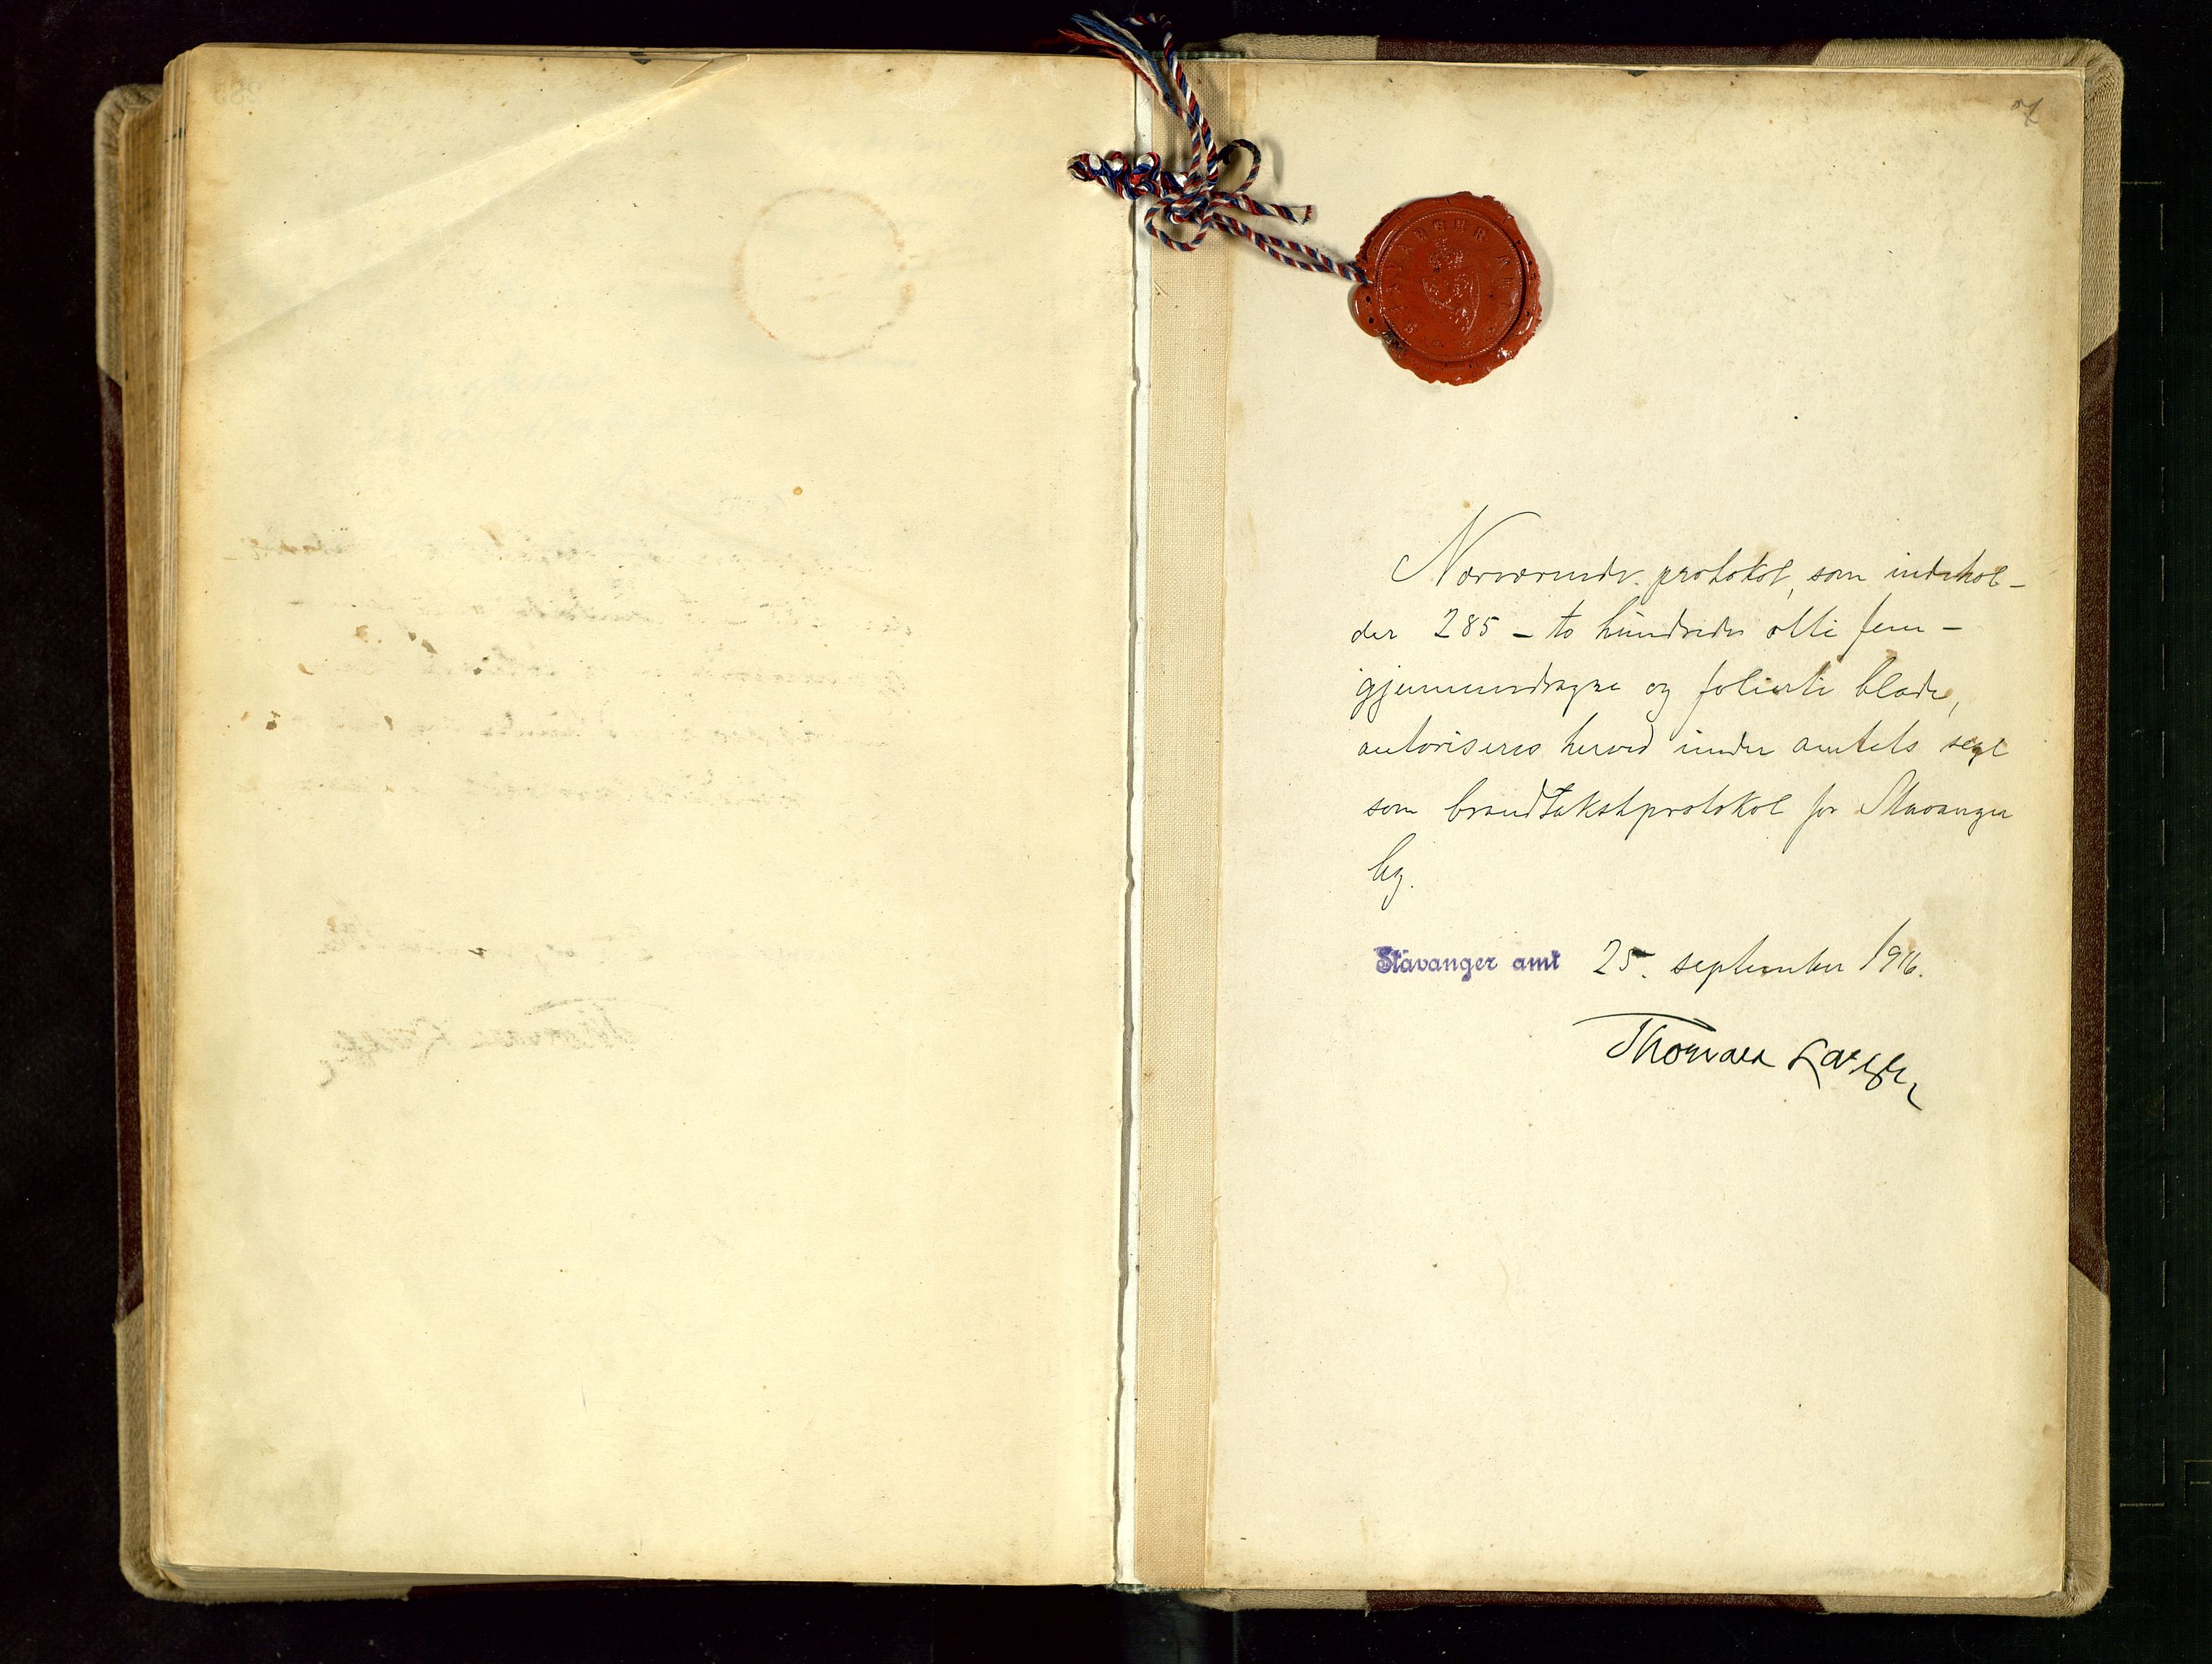 STAVANGER AMT
Nærværende protokol, som indehol-
der 285 – to hundrede otti fem –
gjennemdragne og folierte blade,
autoriseres herved under amtets segl
som brandtakstprotokol for Stavanger
by.
Stavanger amt 25. september 1916.
Thorvald